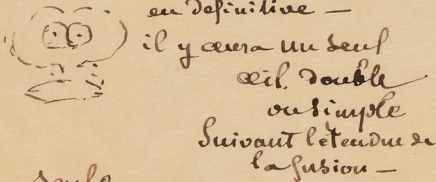 en definitive —
il y aura un seul
œil. double
ou simple
suivant l'étendue de
la fusion —
seule